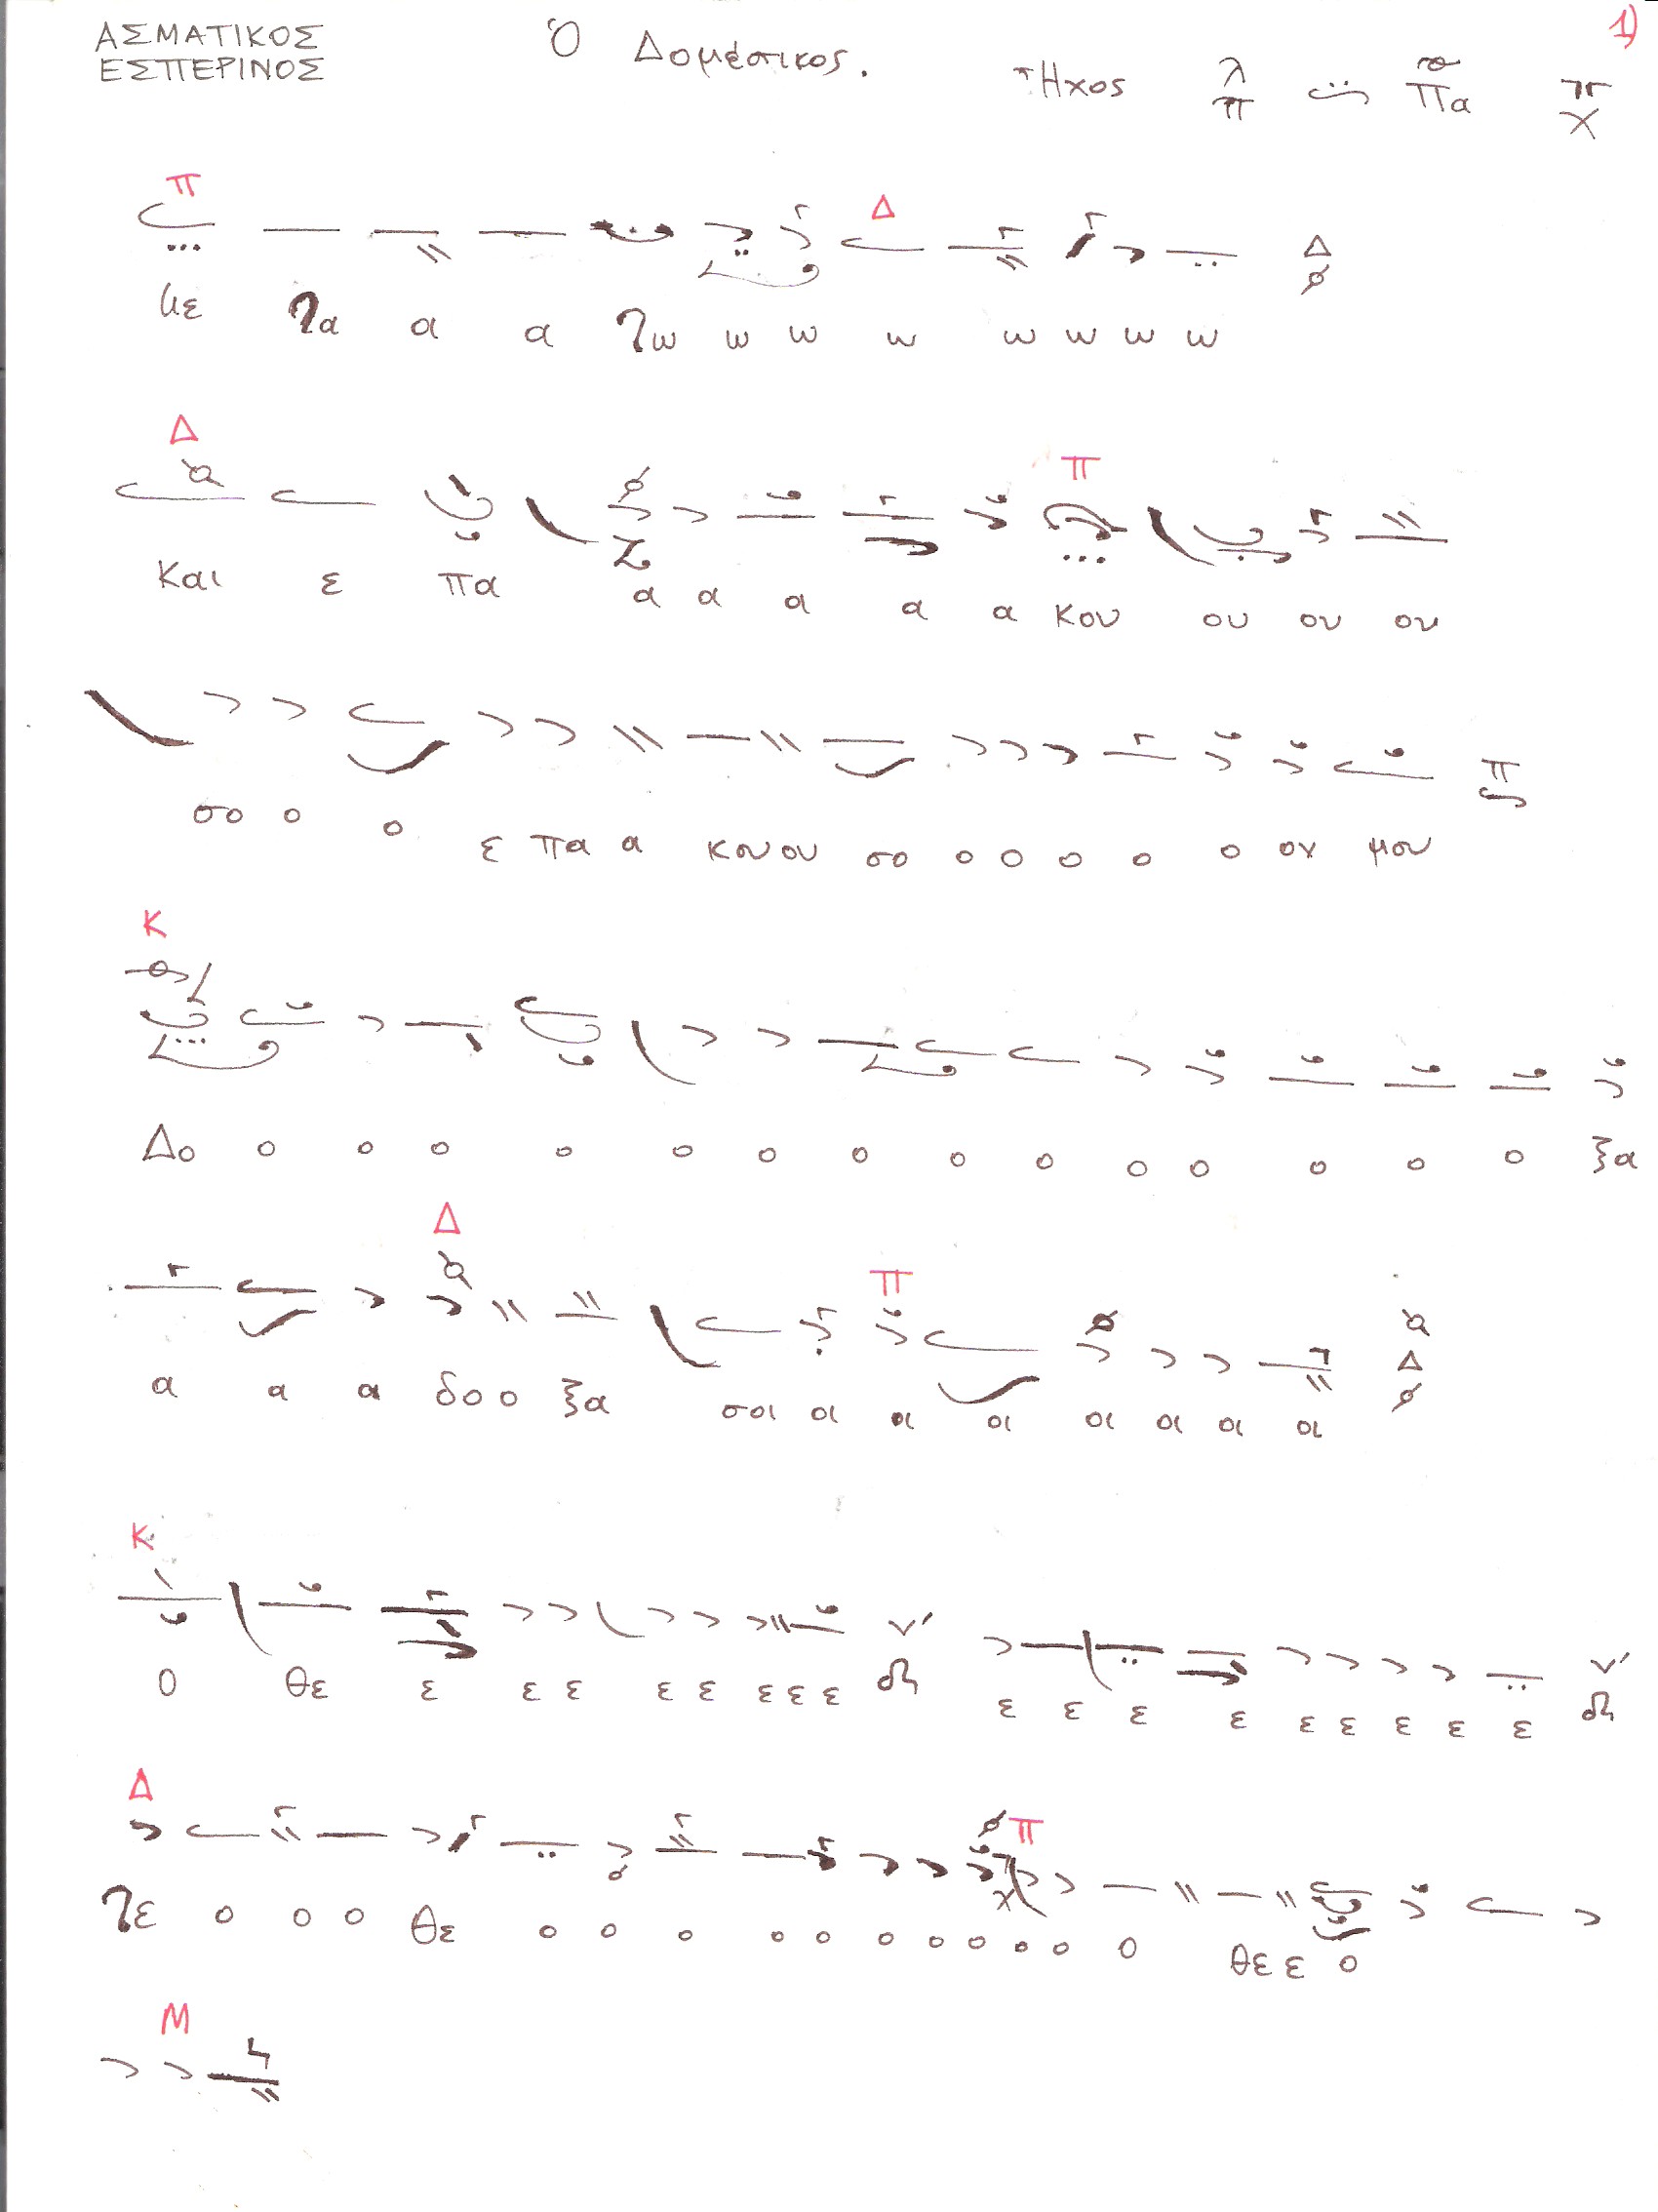 ΑΣΜΑΤΙΚΟΣ
ΕΣΠΕΡΙΝΟΣ
Ὁ Δομέστικος.
Ἦχος λ π Πα
1)
Π Δ
Με γα α α γω ω ω ω ω ω ω ω Δ
Δ Π
Και ε πα α α α α α κου ου ου ου
σο ο ο ε πα α κου ου σο ο ο ο ο ο ου μου Π
Κ
Δο ο ο ο ο ο ο ο ο ο ο ο ο ο ο ξα
Δ Π
α α α δο ο ξα σοι οι οι οι οι οι οι οι Δ
Κ
Ο θε ε ε ε ε ε ε ε ε ν' ε ε ε ε ε ε ε ε ε ν'
Δ Π
γε ο ο ο θε ο ο ο ο ο ο ο ο ο ο ο θε ε ο
Μ